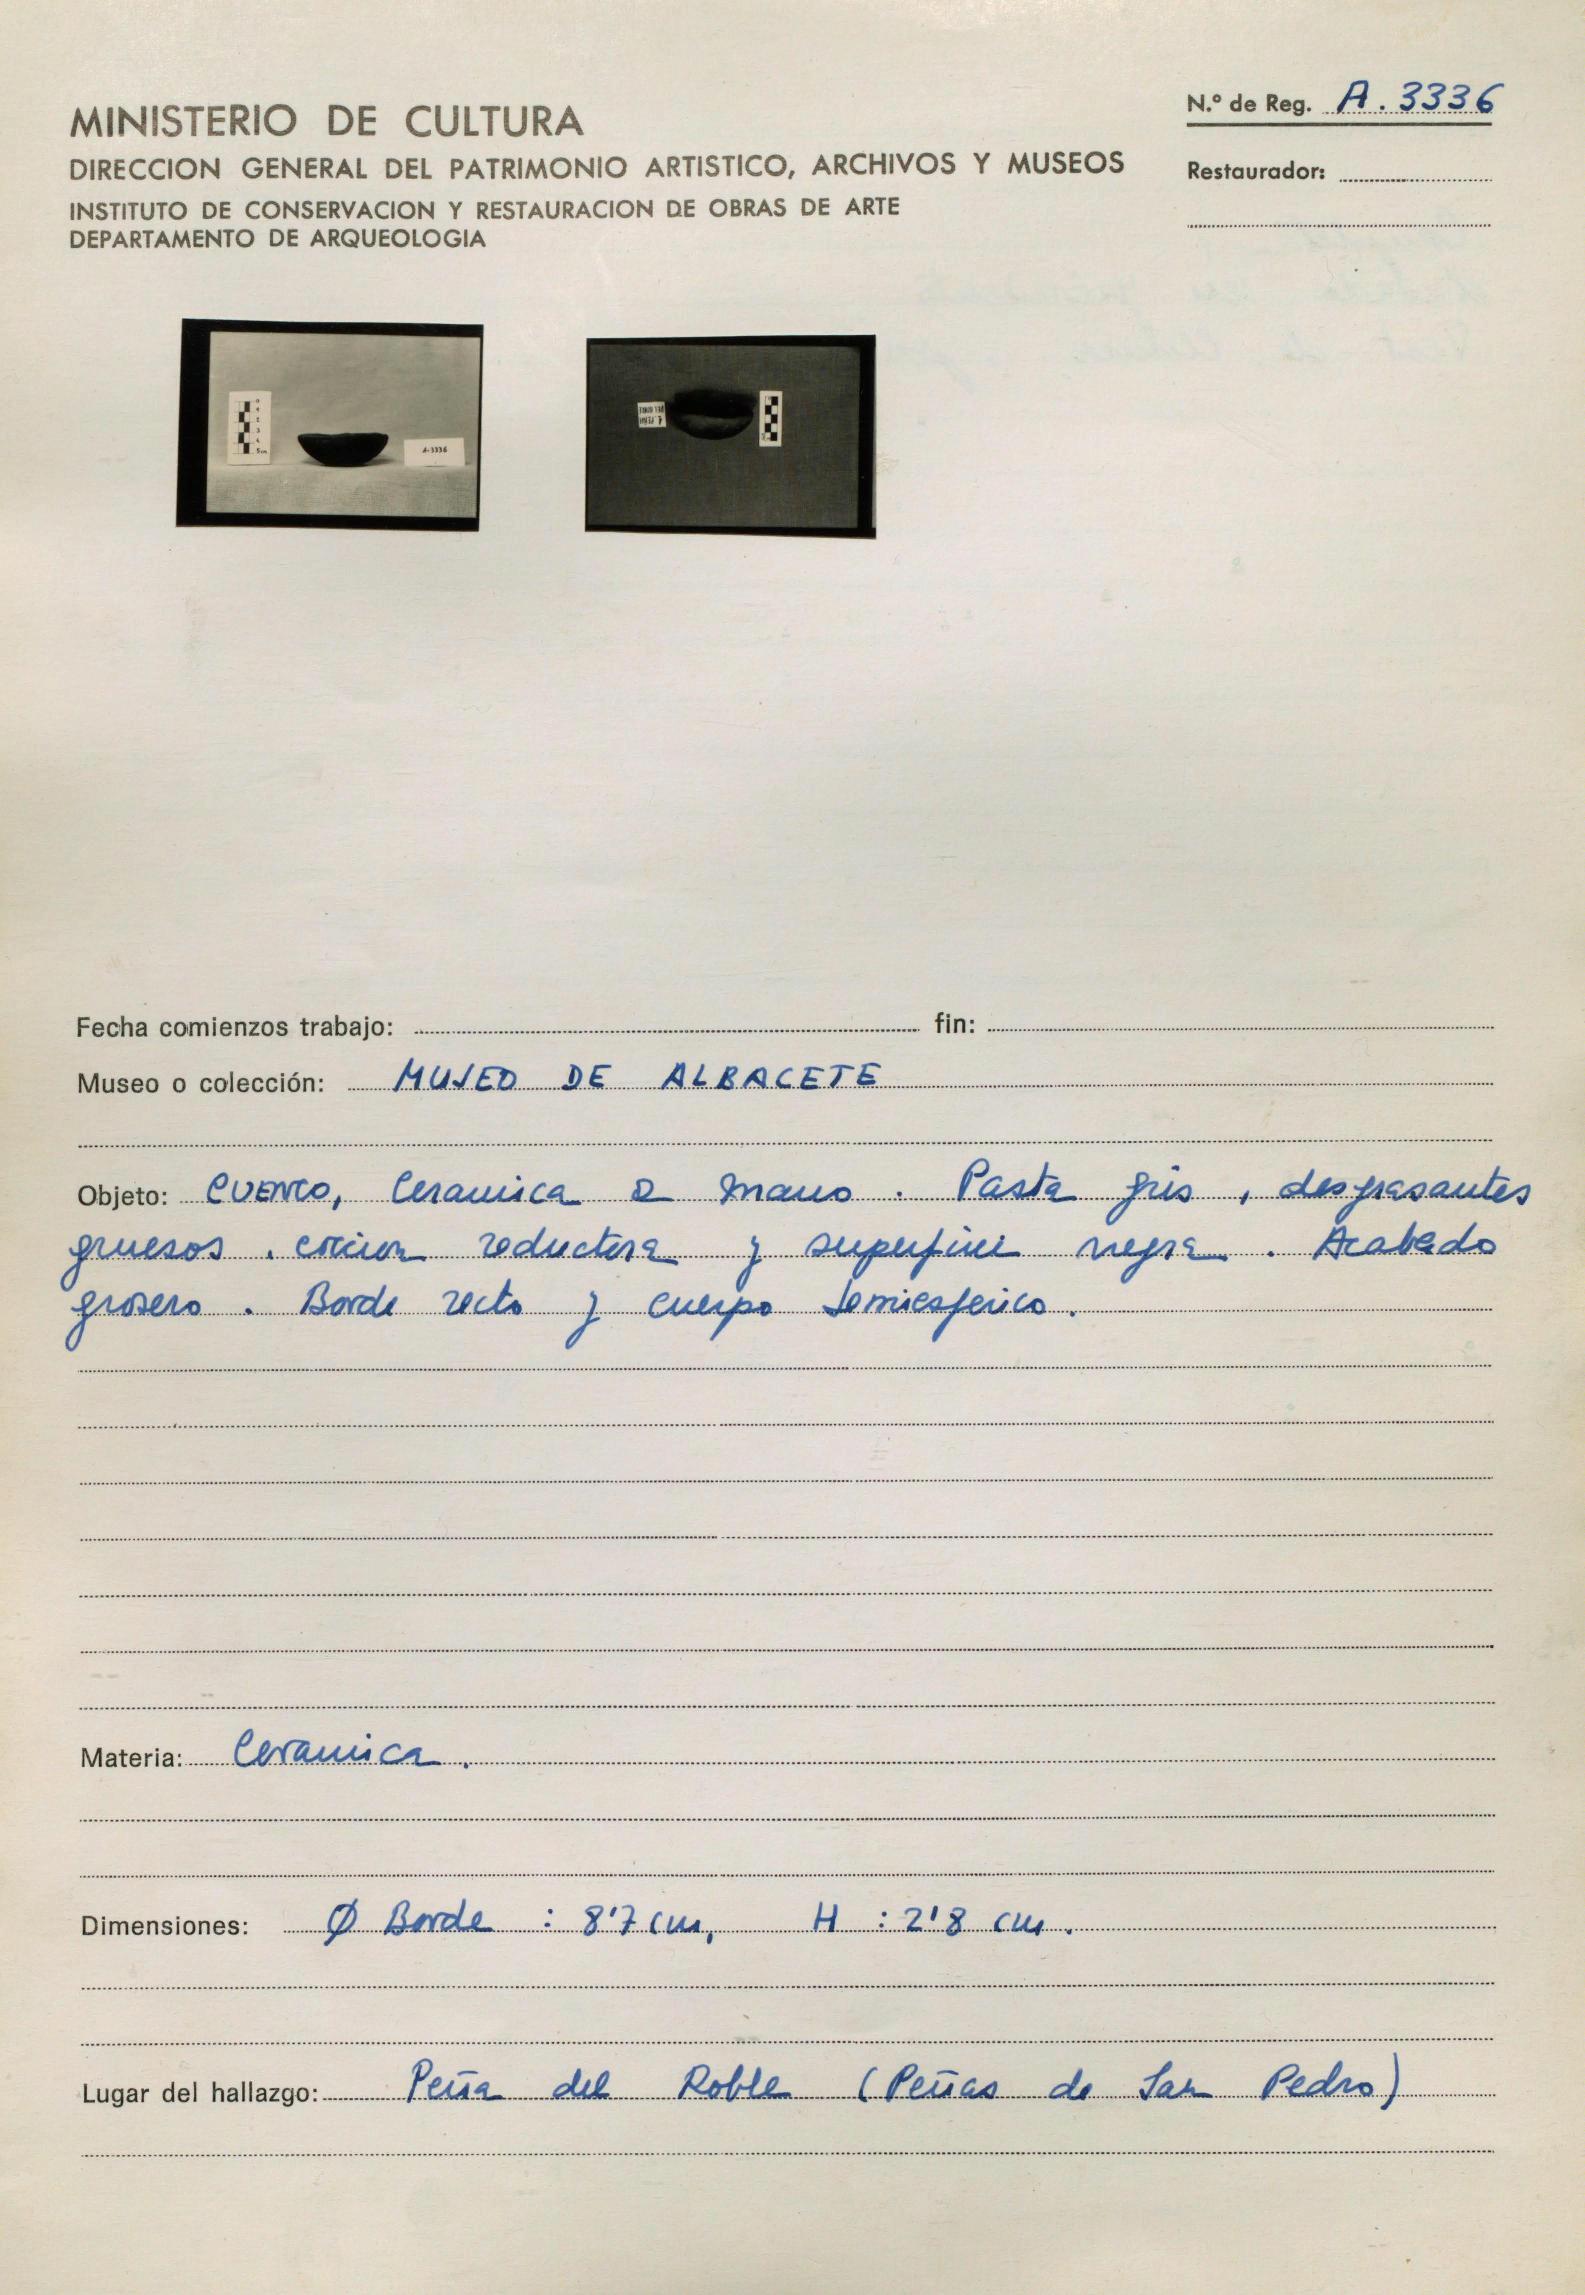 MINISTERIO DE CULTURA
DIRECCION GENERAL DEL PATRIMONIO ARTISTICO, ARCHIVOS Y MUSEOS
INSTITUTO DE CONSERVACION Y RESTAURACION DE OBRAS DE ARTE
DEPARTAMENTO DE ARQUEOLOGIA
N.º de Reg. A.3336
Restaurador:
A-3336
Fecha comienzos trabajo: fin:
Museo o colección: MUSEO DE ALBACETE
Objeto: CUENCO, Ceramica a mano. Pasta gris, desgrasantes
gruesos. coccion reductora y superficie negra. Acabado
grosero. Borde recto y cuerpo semiesferico.
Materia: Ceramica.
Dimensiones: Ø Borde : 8'7 cm, H : 2'8 cm.
Lugar del hallazgo: Peña del Roble (Peñas de San Pedro)